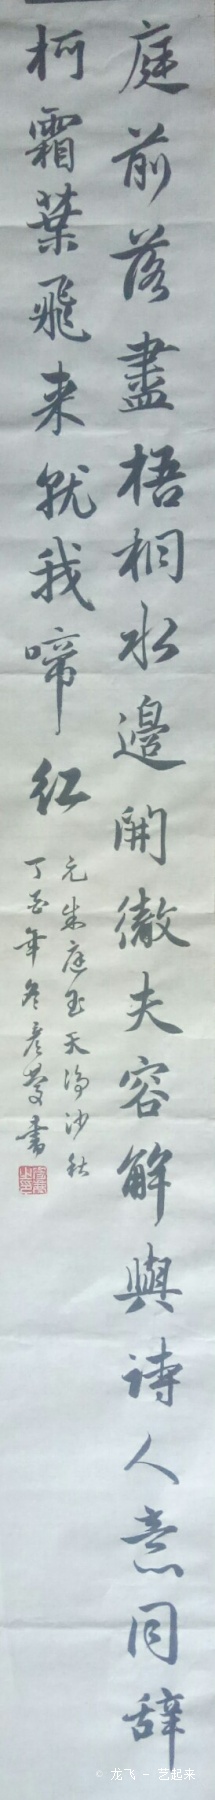 庭前落盡梧桐水邊開徹夫容解與詩人意同辞
柯霜葉飛来就我啼红
元朱庭玉天净沙秋
丁酉年冬彦
書
© 龙飞 - 艺起来